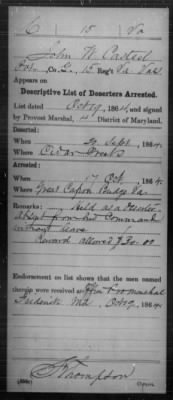 C 15 Va
John W. Casteel
Pvt., Co. C., 15 Reg't Va Vols
Appears on
Descriptive List of Deserters Arrested.
List dated Oct 19, 1864, and signed
by Provost Marshal, 4 District of Maryland.
Deserted:
When 20 Sept, 1864
Where Cedar Creek
Arrested:
When 17 Oct, 1864
Where Great Capon Bridge Va
Remarks: Held as a Deserter
absent from his Command
without leave
Reward allowed $30.00
Endorsement on list shows that the men named
therein were received at Office Pro Marshal
Frederick Md Oct 19, 1864.
Thompson
Copyist.